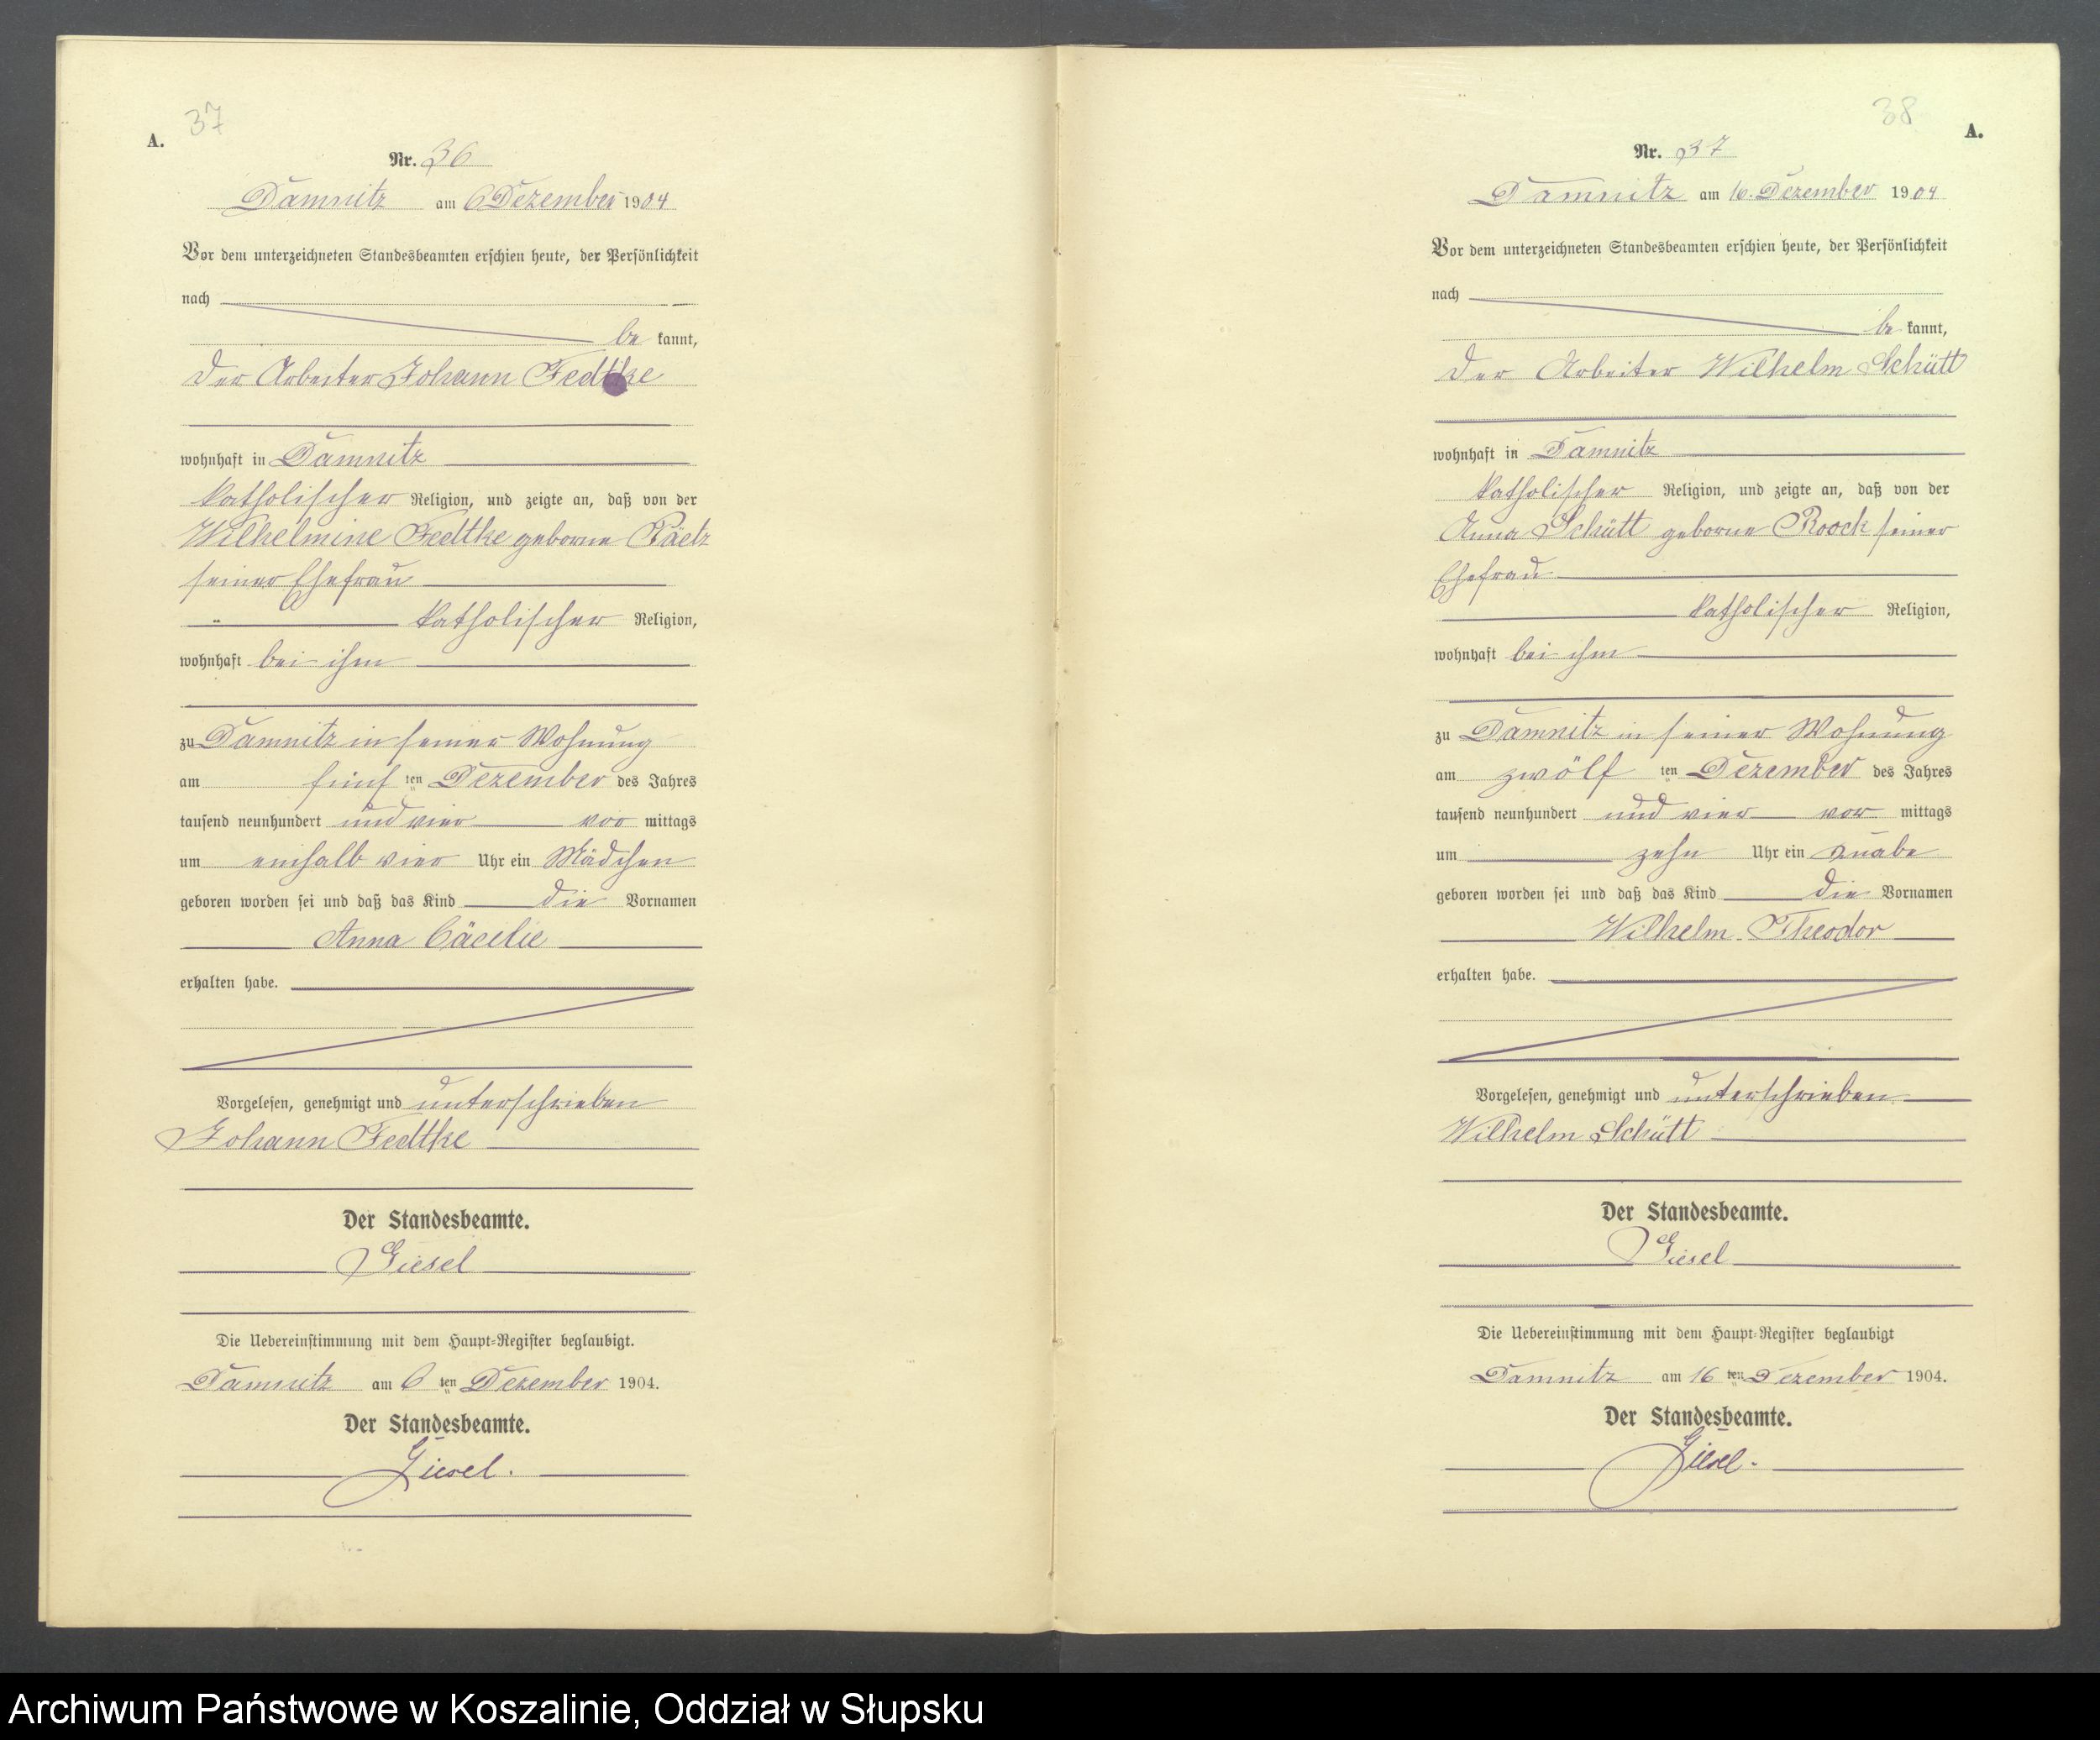 37
A.
Nr. 36
Damnitz am 6 Dezember 1904
Vor dem unterzeichneten Standesbeamten erschien heute, der Persönlichkeit
nach
be kannt,
der Arbeiter Johann Fedtke
wohnhaft in Damnitz
katholischer Religion, und zeigte an, daß von der
Wilhelmine Fedtke geborne Päetz
seiner Ehefrau
katholischer Religion,
wohnhaft bei ihm
zu Damnitz in seiner Wohnung
am fünf ten Dezember des Jahres
tausend neunhundert und vier vor mittags
um einhalb vier Uhr ein Mädchen
geboren worden sei und daß das Kind die Vornamen
Anna Cäcilie
erhalten habe.
Vorgelesen, genehmigt und unterschrieben
Johann Fedtke
Der Standesbeamte.
Giesel
Die Uebereinstimmung mit dem Haupt-Register beglaubigt.
Damnitz am 6 ten Dezember 1904.
Der Standesbeamte.
Giesel.
38
A.
Nr. 37
Damnitz am 16. Dezember 1904
Vor dem unterzeichneten Standesbeamten erschien heute, der Persönlichkeit
nach
be kannt,
der Arbeiter Wilhelm Schütt
wohnhaft in Damnitz
katholischer Religion, und zeigte an, daß von der
Anna Schütt geborne Roock seiner
Ehefrau
katholischer Religion,
wohnhaft bei ihm
zu Damnitz in seiner Wohnung
am zwölf ten Dezember des Jahres
tausend neunhundert und vier vor mittags
um zehn Uhr ein Knabe
geboren worden sei und daß das Kind die Vornamen
Wilhelm Theodor
erhalten habe.
Vorgelesen, genehmigt und unterschrieben
Wilhelm Schütt
Der Standesbeamte.
Giesel
Die Uebereinstimmung mit dem Haupt-Register beglaubigt
Damnitz am 16 ten Dezember 1904.
Der Standesbeamte.
Giesel.
Archiwum Państwowe w Koszalinie, Oddział w Słupsku